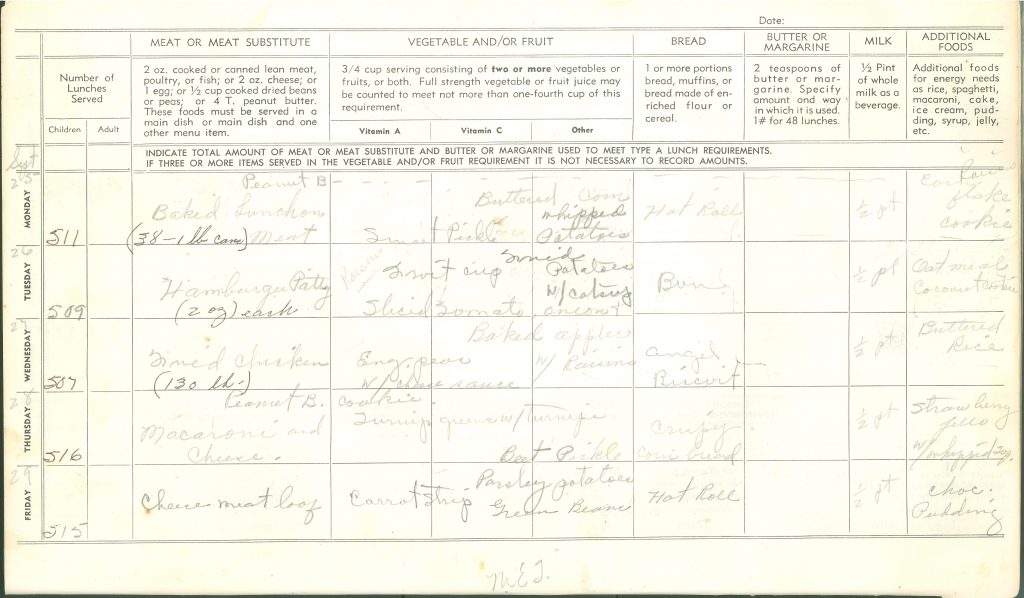 Date:
MEAT OR MEAT SUBSTITUTE
VEGETABLE AND/OR FRUIT
BREAD
BUTTER OR
MARGARINE
MILK
ADDITIONAL
FOODS
Number of
Lunches
Served
Children
Adult
2 oz. cooked or canned lean meat,
poultry, or fish; or 2 oz. cheese; or
1 egg; or ½ cup cooked dried beans
or peas; or 4 T. peanut butter.
These foods must be served in a
main dish or main dish and one
other menu item.
3/4 cup serving consisting of two or more vegetables or
fruits, or both. Full strength vegetable or fruit juice may
be counted to meet not more than one-fourth cup of this
requirement.
Vitamin A
Vitamin C
Other
1 or more portions
bread, muffins, or
bread made of en-
riched flour or
cereal.
2 teaspoons of
butter or mar-
garine. Specify
amount and way
in which it is used.
1# for 48 lunches.
½ Pint
of whole
milk as a
beverage.
Additional foods
for energy needs
as rice, spaghetti,
macaroni, cake,
ice cream, pud-
ding, syrup, jelly,
etc.
INDICATE TOTAL AMOUNT OF MEAT OR MEAT SUBSTITUTE AND BUTTER OR MARGARINE USED TO MEET TYPE A LUNCH REQUIREMENTS.
IF THREE OR MORE ITEMS SERVED IN THE VEGETABLE AND/OR FRUIT REQUIREMENT IT IS NOT NECESSARY TO RECORD AMOUNTS.
Sept
25
MONDAY
511
Peanut B
Baked Lunchon
(38-1 lb cans) Meat
Buttered Corn
whipped
Sweet Pickle
Potatoes
Hot Roll
½ pt
flake
cookie
26
TUESDAY
509
Hamburger Patty
(2 oz) each
Fruit cup
Potatoes
w/catsup
Sliced Tomato
onion
Bun
½ pt
Oatmeal
Coconut Cookie
WEDNESDAY
507
Fried chicken
(130 lb.)
Baked apples
Eng. peas
w/ Raisins
w/ cheese sauce
angel
Biscuit
½ pt
Buttered
Rice
28
THURSDAY
516
Peanut B. cookie.
Macaroni and
Cheese.
Turnip greens w/ turnips
Beet Pickle
Crispy
corn bread
½ pt
Strawberry
jello
29
FRIDAY
515
Cheese meat loaf
Carrot Strip
Parsley potatoes
Green Beans
Hot Roll
½ pt
choc.
Pudding